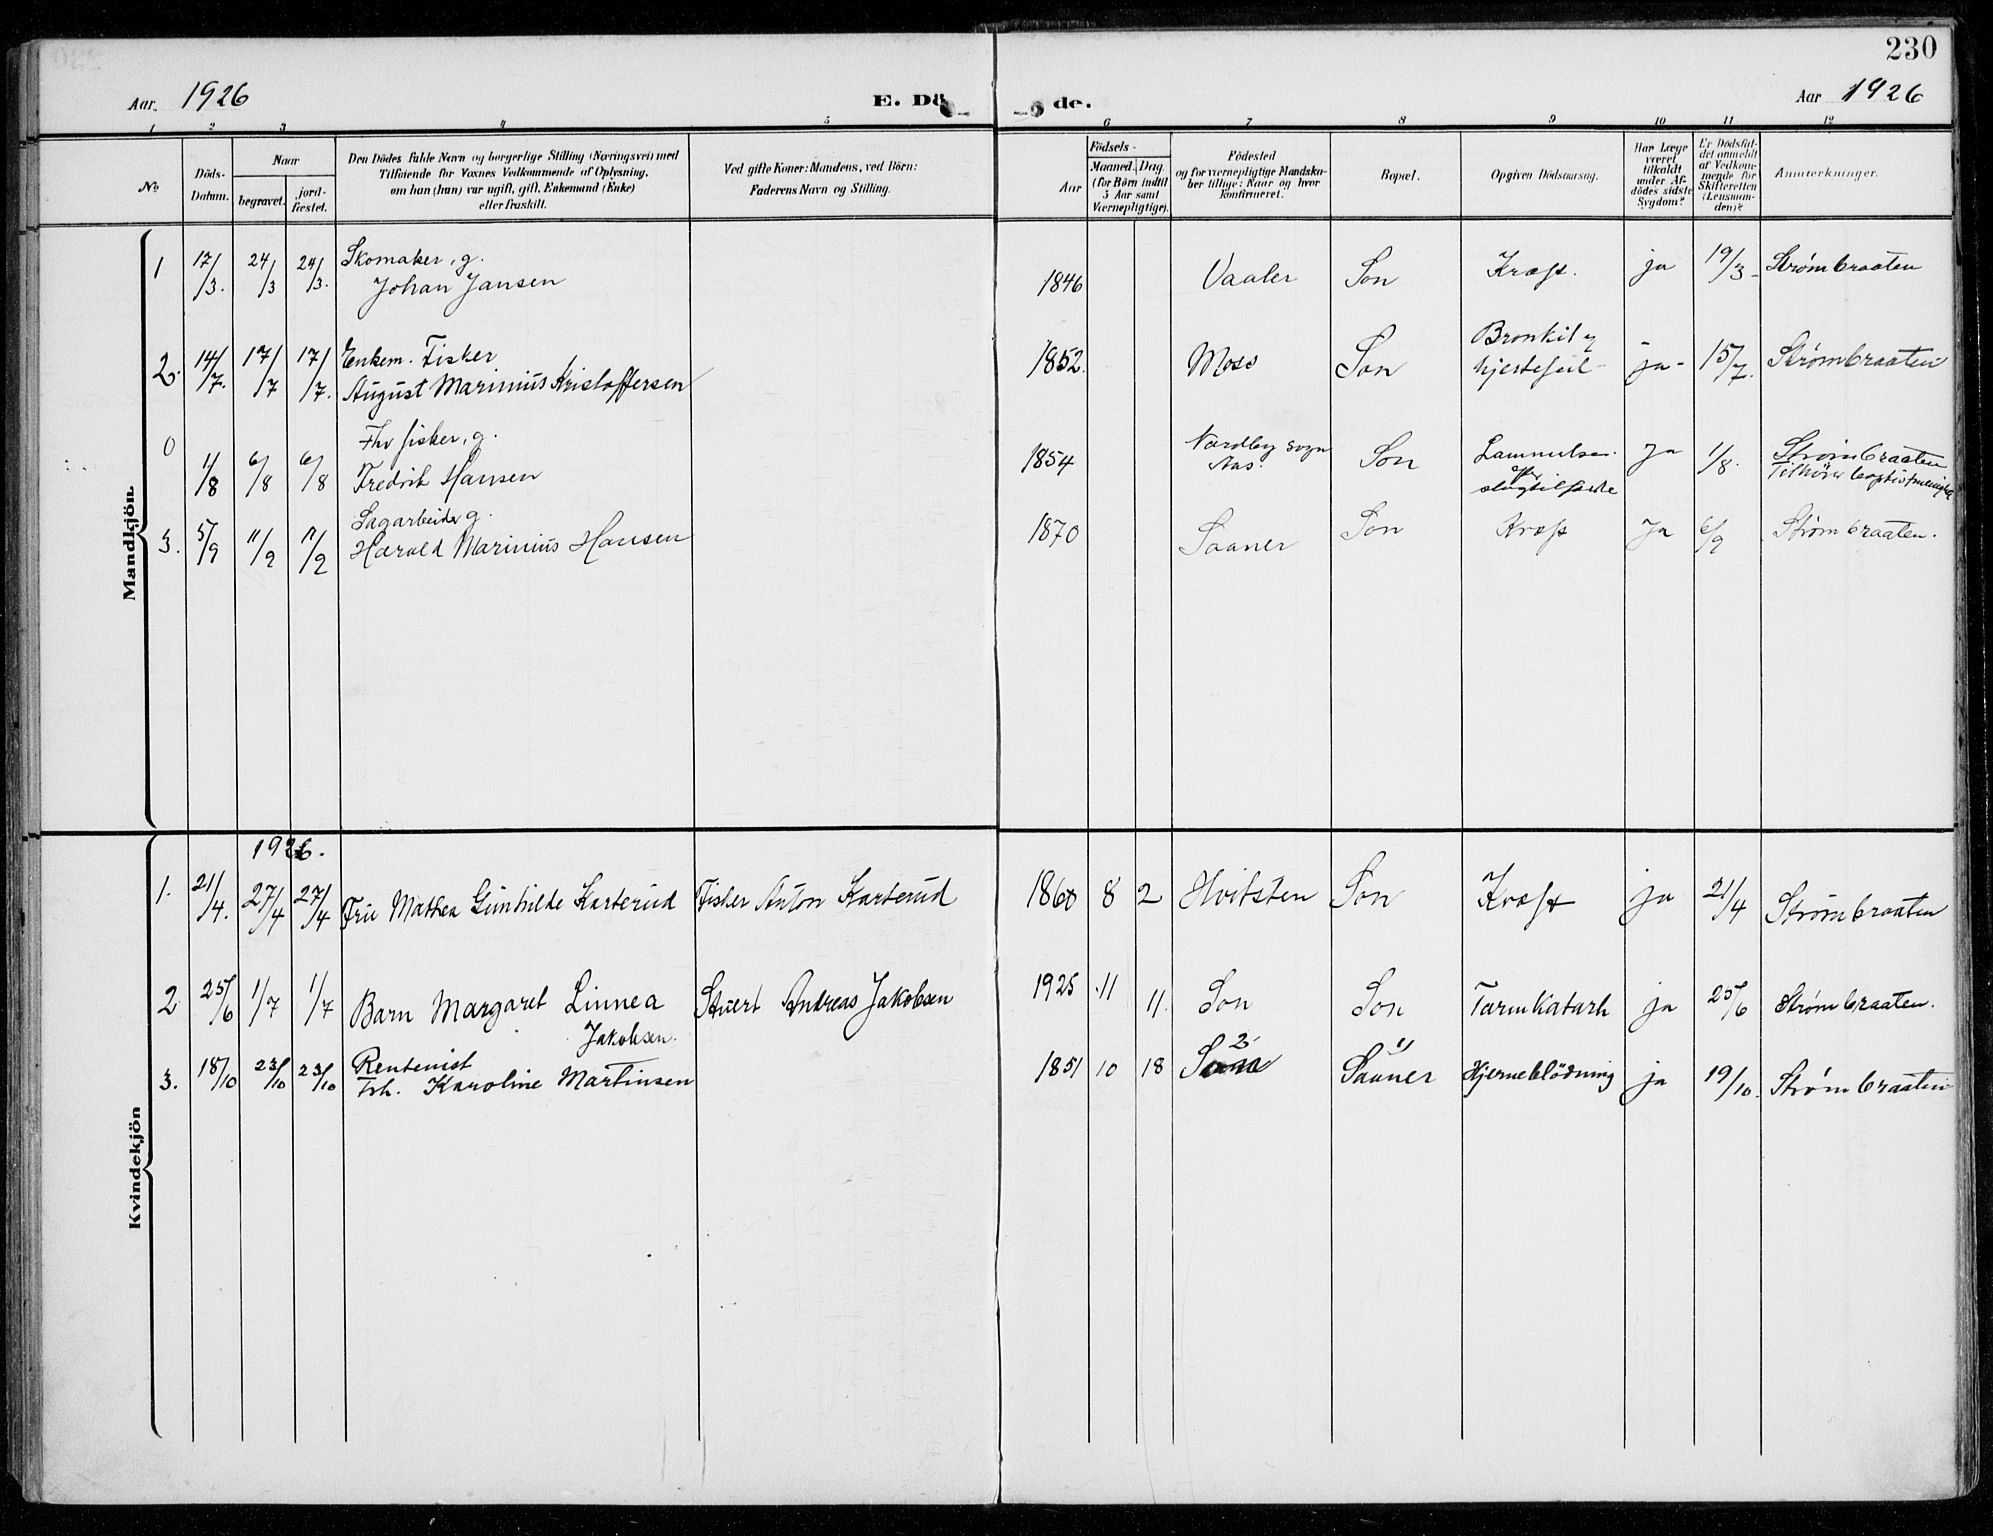 230
Aar. 1926
E. Dö
de.
Aar 1926
1 2 3 4 5 6 7 8 9 10 11 12
No
Döds-
Datum.
Naar
begravet.
jord-
fæstet.
Den Dödes fulde Navn og borgerlige Stilling (Næringsvei) med
Tilföiende for Voxnes Vedkommende af Oplysning,
om han (hun) var ugift, gift, Enkemand (Enke)
eller fraskilt.
Ved gifte Koner: Mandens, ved Börn:
Faderens Navn og Stilling.
Födsels-
Aar
Maaned.
Dag.
(for Börn indtil
5 Aar samt
Værnepligtige).
Födested
og for værnepligtige Mandska-
ber tillige: Naar og hvor
konfirmeret.
Bopæl.
Opgiven Dödsaarsag.
Har Læge
været
tilkaldt
under Af-
dödes sidste
Sygdom?
Er Dödsfal-
det anmeldt
af Vedkom-
mende for
Skifteretten
(Lensman-
den)?
Anmærkninger.
Mandkjön.
1 17/3. 24/3 24/3. Skomaker, g.
Johan Jansen 1846 Vaaler Son Kræft. ja 19/3- Strømbraaten
2. 14/7. 17/7 17/7. Enkem. Fisker
August Marinius Kristoffersen 1852. Moss Son Bronkit og
hjertefeil ja- 15/7. Strømbraaten
0 1/8 6/8 6/8 Fhv fisker, g.
Fredrik Hansen 1854 Nordby sogn
Aas. Son Lammelser
efter
slagtilfælde Ja 1/8. Strømbraaten
Tilhører baptistmenigh
3. 5/9 11/9 11/9 Sagarbeider g.
Harald Marinius Hansen 1870 Saaner Son Kræft Ja 6/9 Strømbraaten.
Kvindekjön
1926.
1. 21/4. 27/4 27/4 Fru Mathea Gunhilde Karterud Fisker Anton Karterud 1860 8 2 Hvitsten Son Kræft ja 21/4 Strømbraaten
2 25/6 1/7 1/7 Barn Margaret Linnea
Jakobsen. Stuert Andreas Jakobsen 1925 11 11. Son Son Tarmkatarh ja 25/6 Strømbraaten.
3. 18/10 23/10 23/10 Rentenist
Frk. Karoline Martinsen 1851 10 18 2 Saaner Hjerneblödning ja 19/10. Strømbraaten